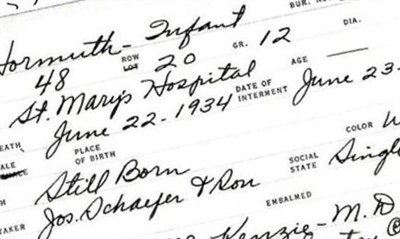 BUR. NO.
Hormuth - Infant
48 ROW LOT 20 GR. 12 DIA.
St. Mary's Hospital AGE
June 22-1934 DATE OF INTERMENT June 23-
EATH PLACE OF BIRTH
ALE Still Born SOCIAL STATE Singl COLOR W
TAKER Jos. Schaefer & Son
EMBALMED
Kenzie - M.D